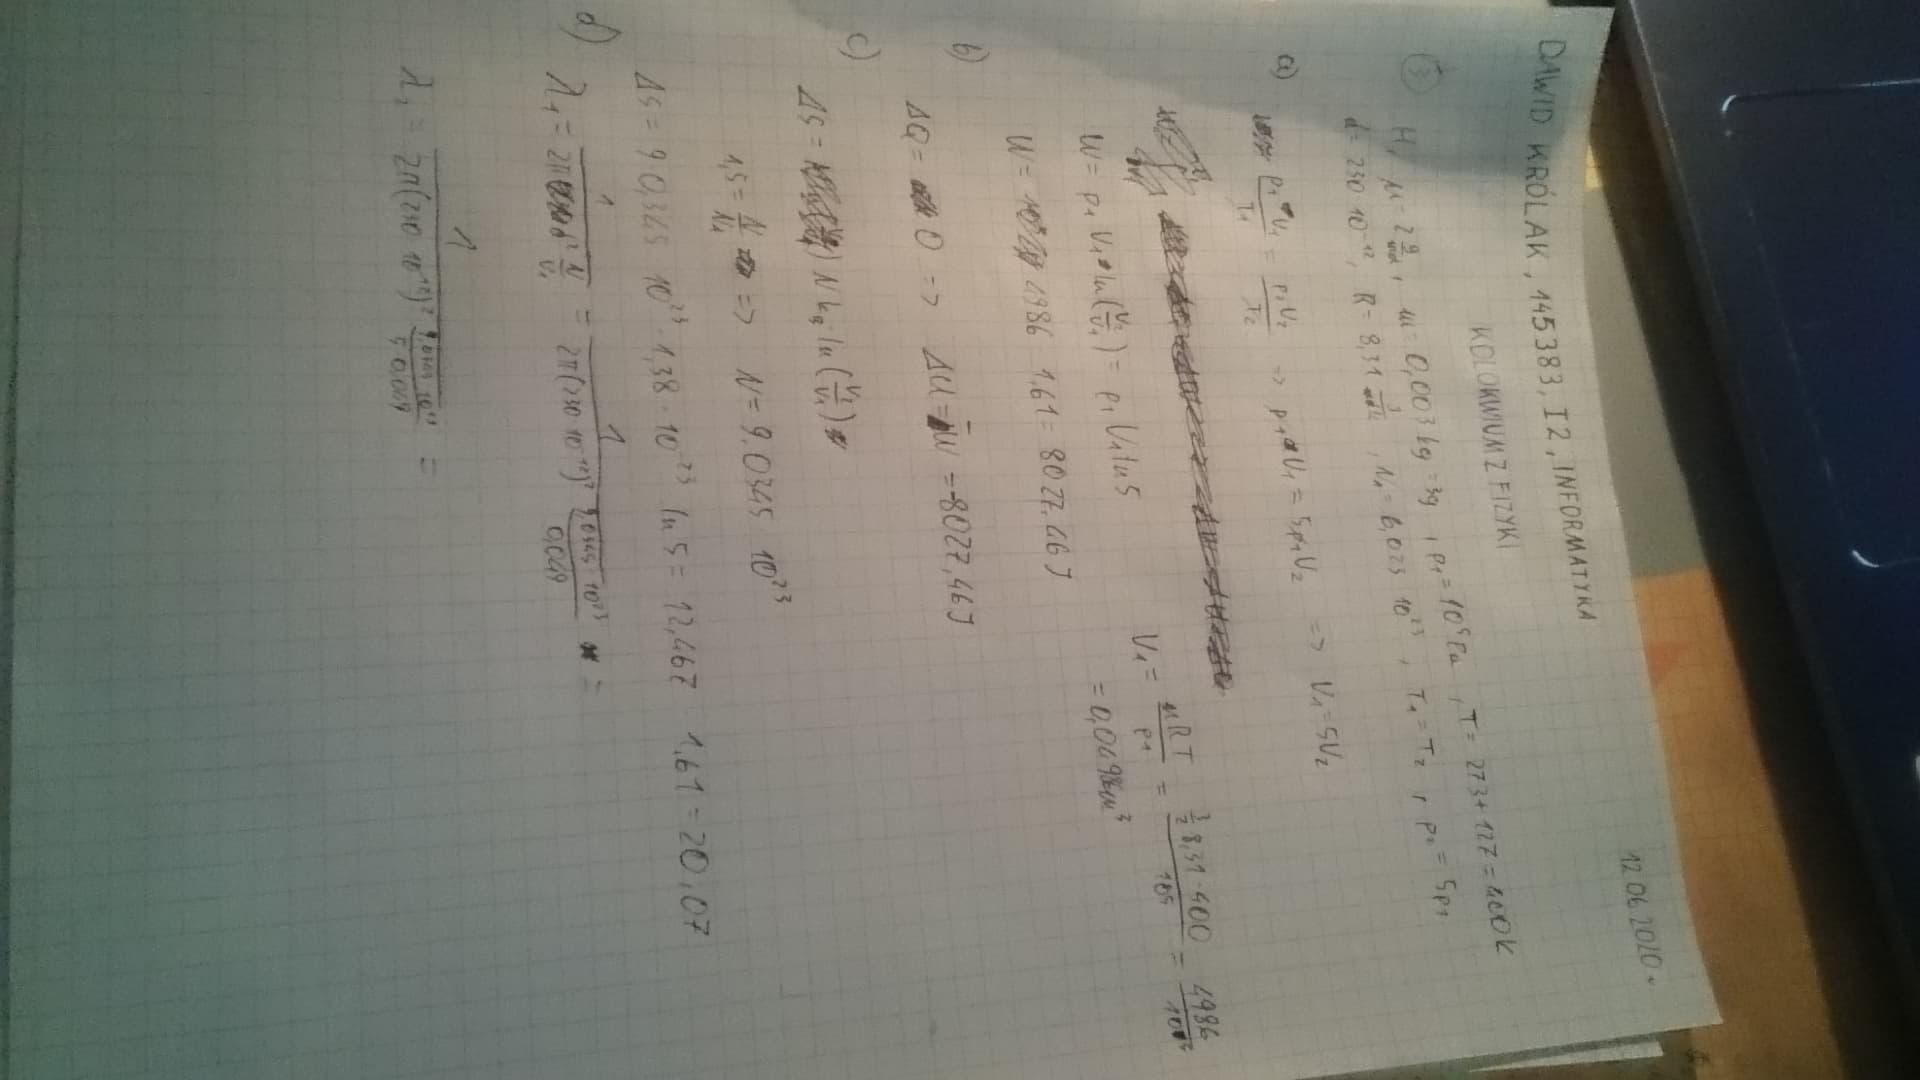 12.06.2020r.
DAWID KRÓLAK, 145383, I2, INFORMATYKA
KOLOKWIUM Z FIZYKI
③ H, μ = 2 g/mol, m = 0,003 kg = 3g, p1 = 10^5 Pa, T = 273+127 = 400K
d = 230 10^-12, R = 8,31, NA = 6,023 10^23, T1 = T2, p2 = 5p1
a) p1 V1 / T1 = p2 V2 / T2 => p1 V1 = 5p1V2 => V1 = 5V2
V1 = nRT / p1 = 3/2 8,31·400 / 10^5 = 4986 / 10^5
W = p1 V1 · ln(V2/V1) = p1 V1 ln 5 = 0,0498 m^3
W = 4986 1,61 = 8027.46J
b) ΔQ = 0 => ΔU = -W = -8027,46J
c) ΔS = N kB · ln(V2/V1)
1,5 = N/NA => N = 9.0345 10^23
ΔS = 9.0345 10^23 · 1,38 · 10^-23 ln 5 = 12,467 1,61 = 20.07
d) λ1 = 1 / 2π d^2 N/V1 = 1 / 2π(230 10^-12)^2 9.0345 10^23 / 0,049 =
λ1 = 1 / 2π(230 10^-12)^2 =